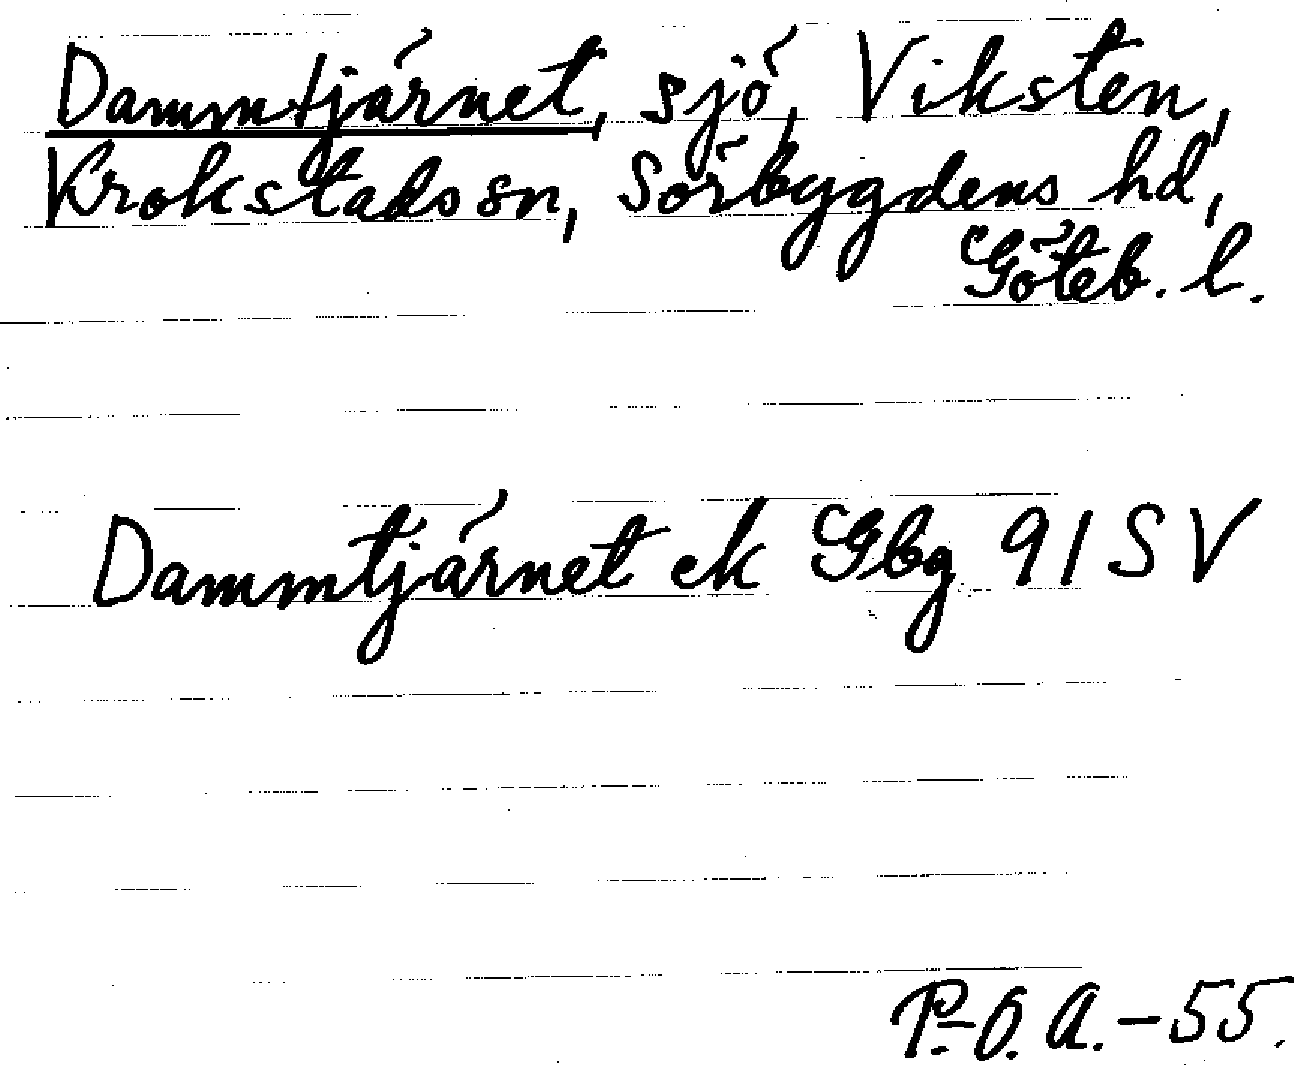 Dammtjärnet, sjö, Viksten,
Krokstads sn, Sörbygdens hd,
Göteb. l.
Dammtjärnet ek Gbg 91 SV
P.-O. A. - 55.